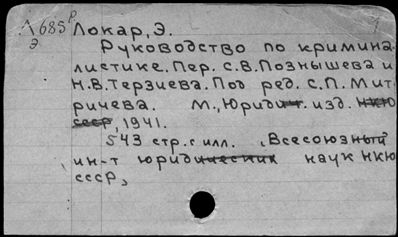 Л 685 р Локар, Э. 1
Э
Руководство по кримина-
листике. Пер. С.В. Познышева и
Н.В. Терзиева. Под ред. С.П. Мит-
ричева. М., Юридит. изд. НКЮ
СССР, 1941.
543 стр. с илл. (Всесоюзный
ин-т юридических наук НКЮ
СССР)